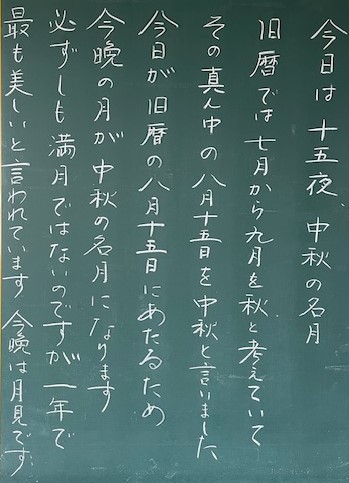 今日は十五夜、中秋の名月
旧暦では七月から九月を秋と考えていて
その真ん中の八月十五日を中秋と言いました
今日が旧暦の八月十五日にあたるため
今晩の月が中秋の名月になります
必ずしも満月ではないのですが一年で
最も美しいと言われています 今晩は月見です